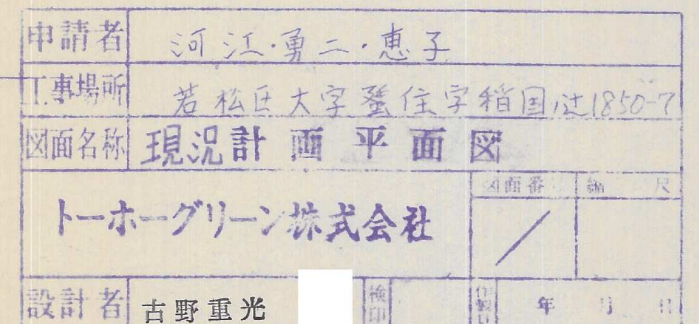 申請者 河江・勇二・恵子
工事場所 若松区大字蜑住字稲国辻1850-7
図面名称 現況計画平面図
トーホーグリーン株式会社 図面番 縮尺
設計者 古野重光 検印 作製日 年 月 日